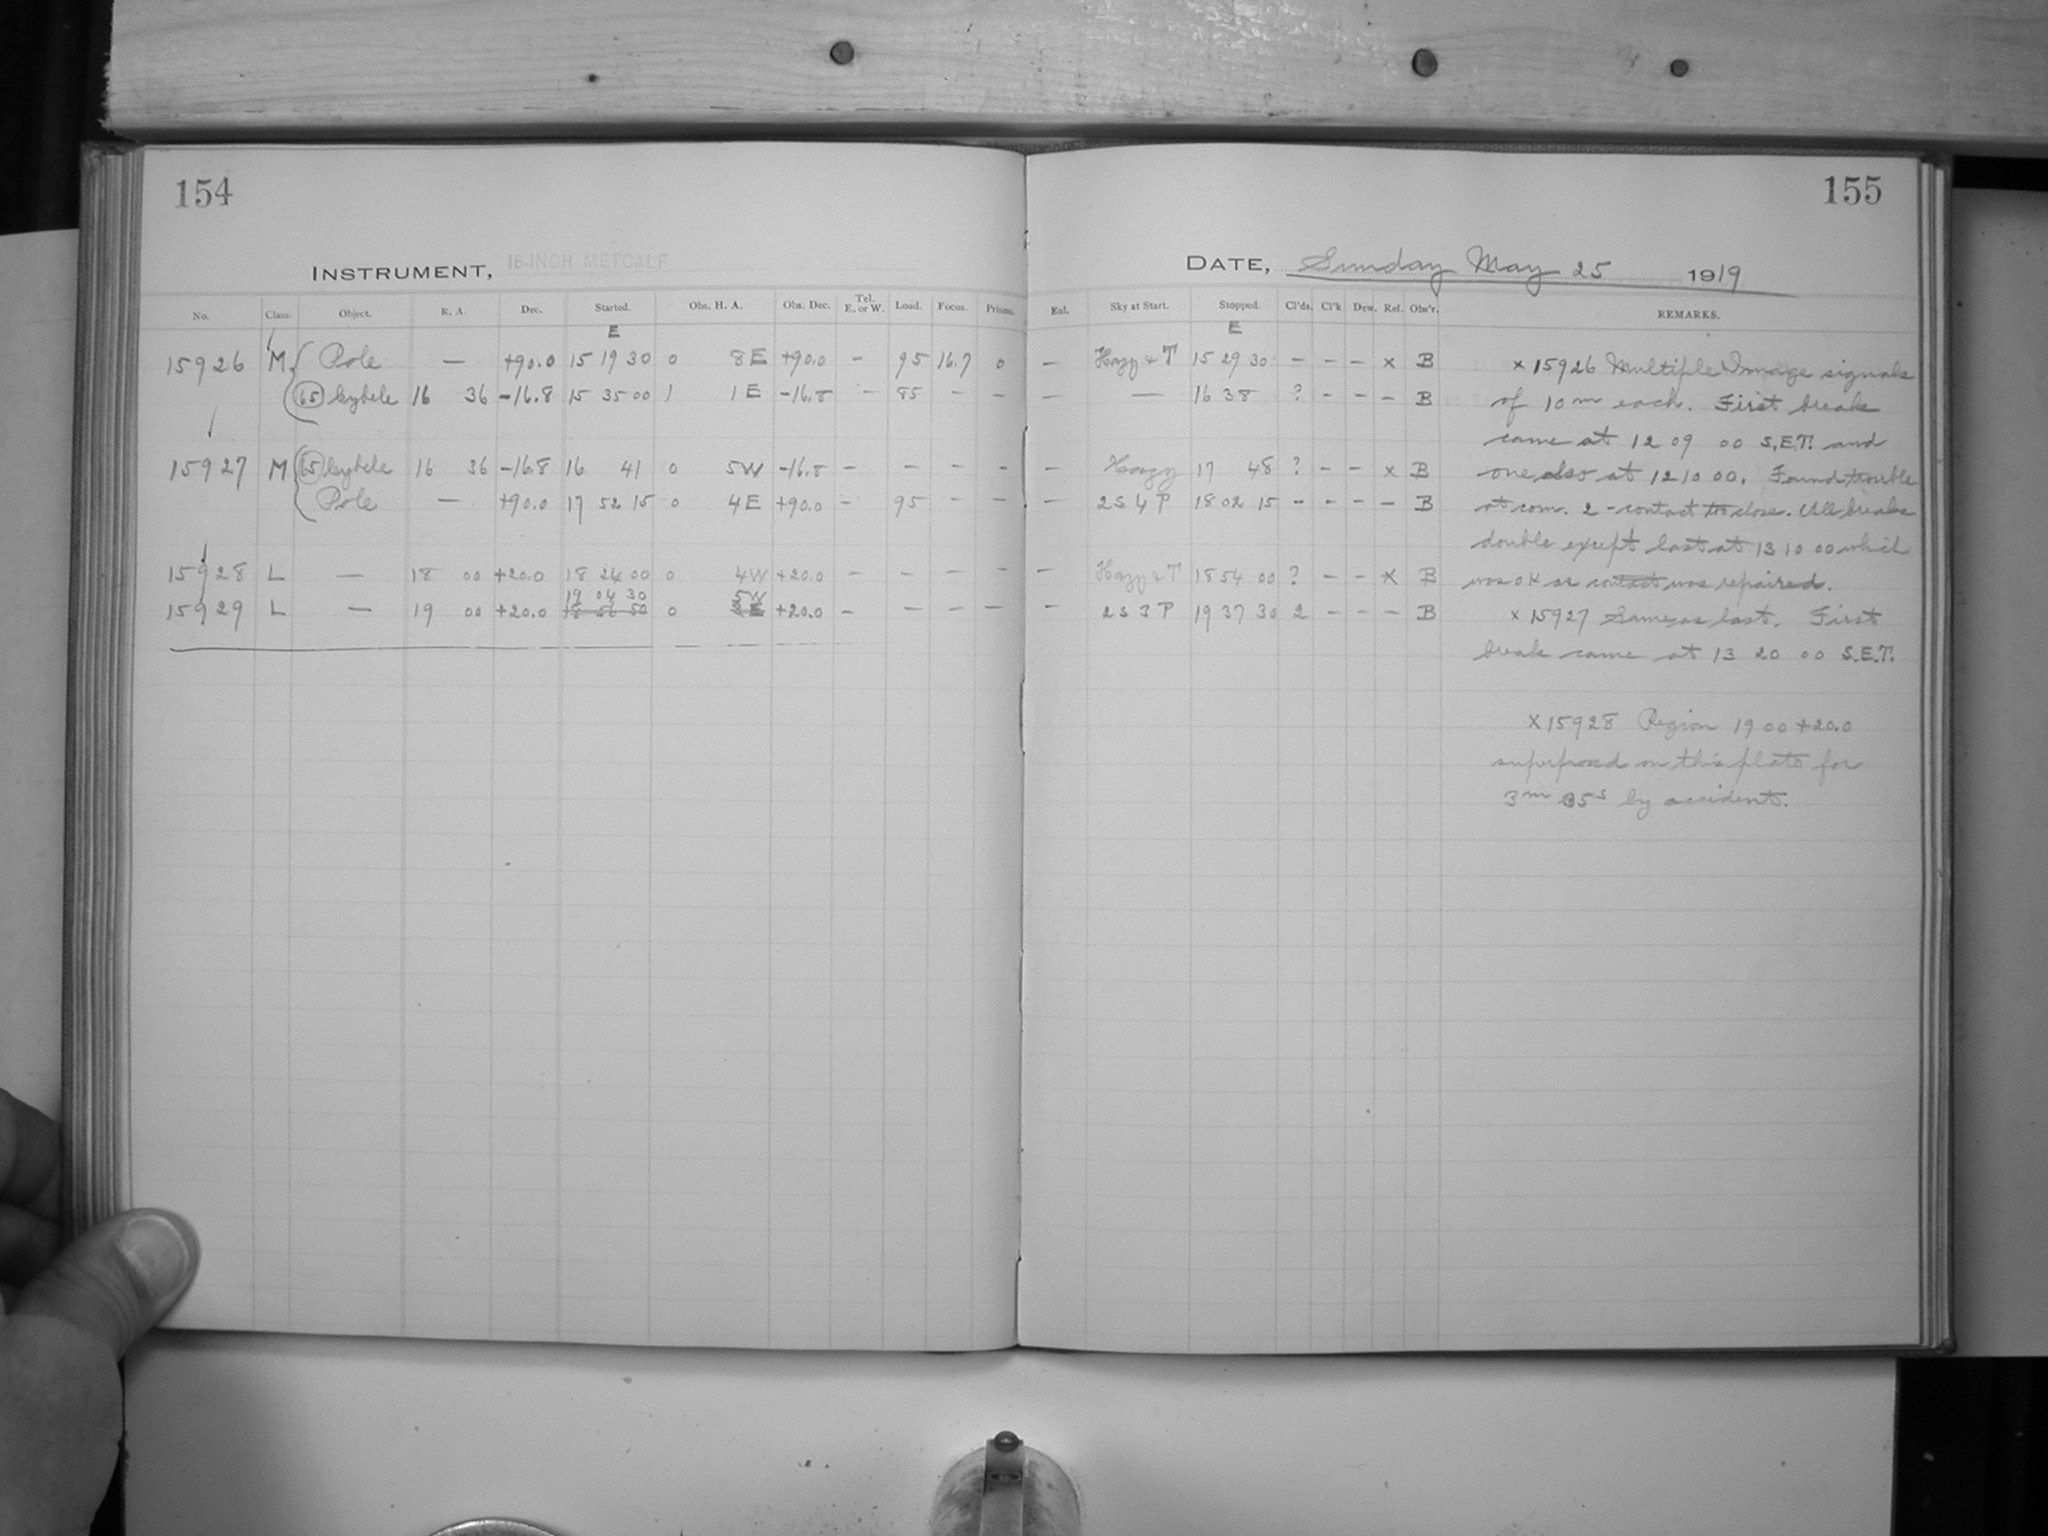 154
INSTRUMENT, 16-INCH METCALF
No. Class. Object. R. A. Dec. Started. Obs. H. A. Obs. Dec. Tel. E. or W. Load. Focus. Prisms.
E
15926 M Pole — +90.0 15 19 30 0 8E +90.0 - 95 16.7 0
(65) Cybele 16 36 -16.8 15 35 00 1 1E -16.8 - 85 - -
15927 M (65) Cybele 16 36 -16.8 16 41 0 5W -16.8 - - - -
Pole — +90.0 17 52 15 0 4E +90.0 - 95 - -
15928 L — 18 00 +20.0 18 24 00 0 4W +20.0 - - - -
19 04 30 5W
15929 L — 19 00 +20.0 18 56 50 0 E +20.0 - - - -
155
DATE, Sunday May 25 1919
Ext. Sky at Start. Stopped. Cl'ds. Cl'k Dew. Ref. Obs'r. REMARKS.
E
— Hazy & T 15 29 30 - - - x B
— — 16 38 ? - - - B
— Hazy 17 48 ? - - x B
— 2 S 4 P 18 02 15 - - - - B
— Hazy & T 18 54 00 ? - - x B
- 2 S 3 P 19 37 30 2 - - - B
x 15926 Multiple Image signals
of 10m each. First break
came at 12 09 00 S.E.T. and
one also at 12 10 00. Found trouble
at com. 2 - contact too close. All breaks
double except last at 13 10 00 which
was OK as contact was repaired.
x 15927 Same as last. First
break came at 13 20 00 S.E.T.
x 15928 Region 19 00 +20.0
superposed on this plate for
3m 35s by accident.